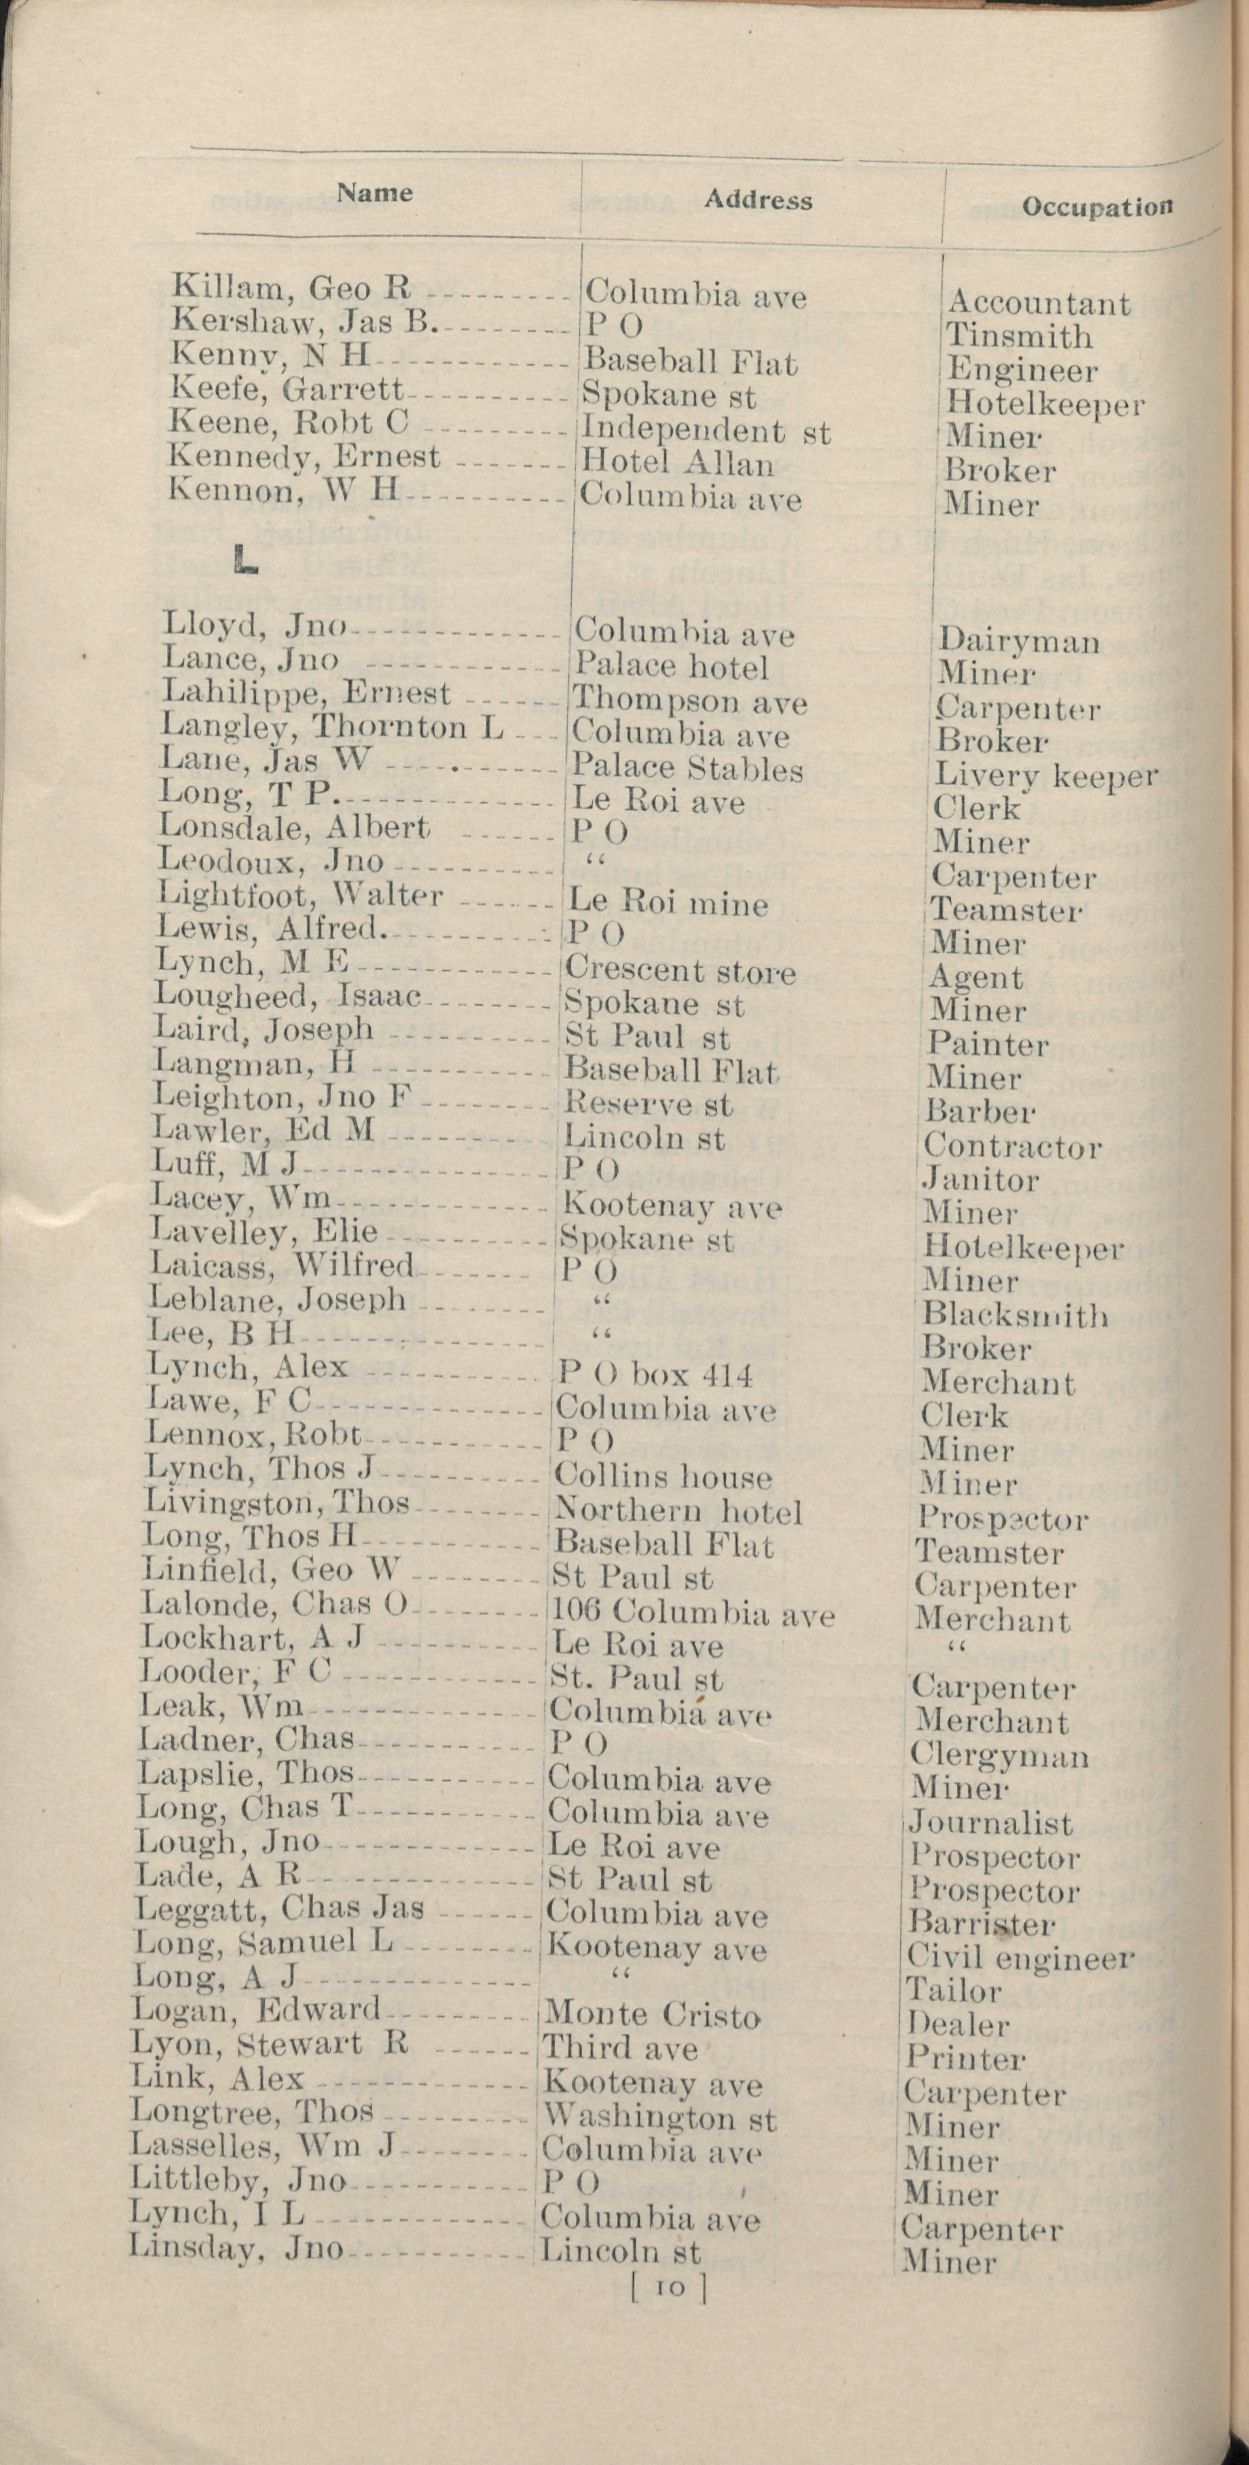 Name Address Occupation
Killam, Geo R Columbia ave Accountant
Kershaw, Jas B. P O Tinsmith
Kenny, N H Baseball Flat Engineer
Keefe, Garrett Spokane st Hotelkeeper
Keene, Robt C Independent st Miner
Kennedy, Ernest Hotel Allan Broker
Kennon, W H Columbia ave Miner
L
Lloyd, Jno Columbia ave Dairyman
Lance, Jno Palace hotel Miner
Lahilippe, Ernest Thompson ave Carpenter
Langley, Thornton L Columbia ave Broker
Lane, Jas W Palace Stables Livery keeper
Long, T P. Le Roi ave Clerk
Lonsdale, Albert P O Miner
Leodoux, Jno “ Carpenter
Lightfoot, Walter Le Roi mine Teamster
Lewis, Alfred. P O Miner
Lynch, M E Crescent store Agent
Lougheed, Isaac Spokane st Miner
Laird, Joseph St Paul st Painter
Langman, H Baseball Flat Miner
Leighton, Jno F Reserve st Barber
Lawler, Ed M Lincoln st Contractor
Luff, M J P O Janitor
Lacey, Wm Kootenay ave Miner
Lavelley, Elie Spokane st Hotelkeeper
Laicass, Wilfred P O Miner
Leblane, Joseph “ Blacksmith
Lee, B H “ Broker
Lynch, Alex P O box 414 Merchant
Lawe, F C Columbia ave Clerk
Lennox, Robt P O Miner
Lynch, Thos J Collins house Miner
Livingston, Thos Northern hotel Prospector
Long, Thos H Baseball Flat Teamster
Linfield, Geo W St Paul st Carpenter
Lalonde, Chas O 106 Columbia ave Merchant
Lockhart, A J Le Roi ave “
Looder, F C St. Paul st Carpenter
Leak, Wm Columbia ave Merchant
Ladner, Chas P O Clergyman
Lapslie, Thos Columbia ave Miner
Long, Chas T Columbia ave Journalist
Lough, Jno Le Roi ave Prospector
Lade, A R St Paul st Prospector
Leggatt, Chas Jas Columbia ave Barrister
Long, Samuel L Kootenay ave Civil engineer
Long, A J “ Tailor
Logan, Edward Monte Cristo Dealer
Lyon, Stewart R Third ave Printer
Link, Alex Kootenay ave Carpenter
Longtree, Thos Washington st Miner
Lasselles, Wm J Columbia ave Miner
Littleby, Jno P O Miner
Lynch, I L Columbia ave Carpenter
Linsday, Jno Lincoln st Miner
[ 10 ]